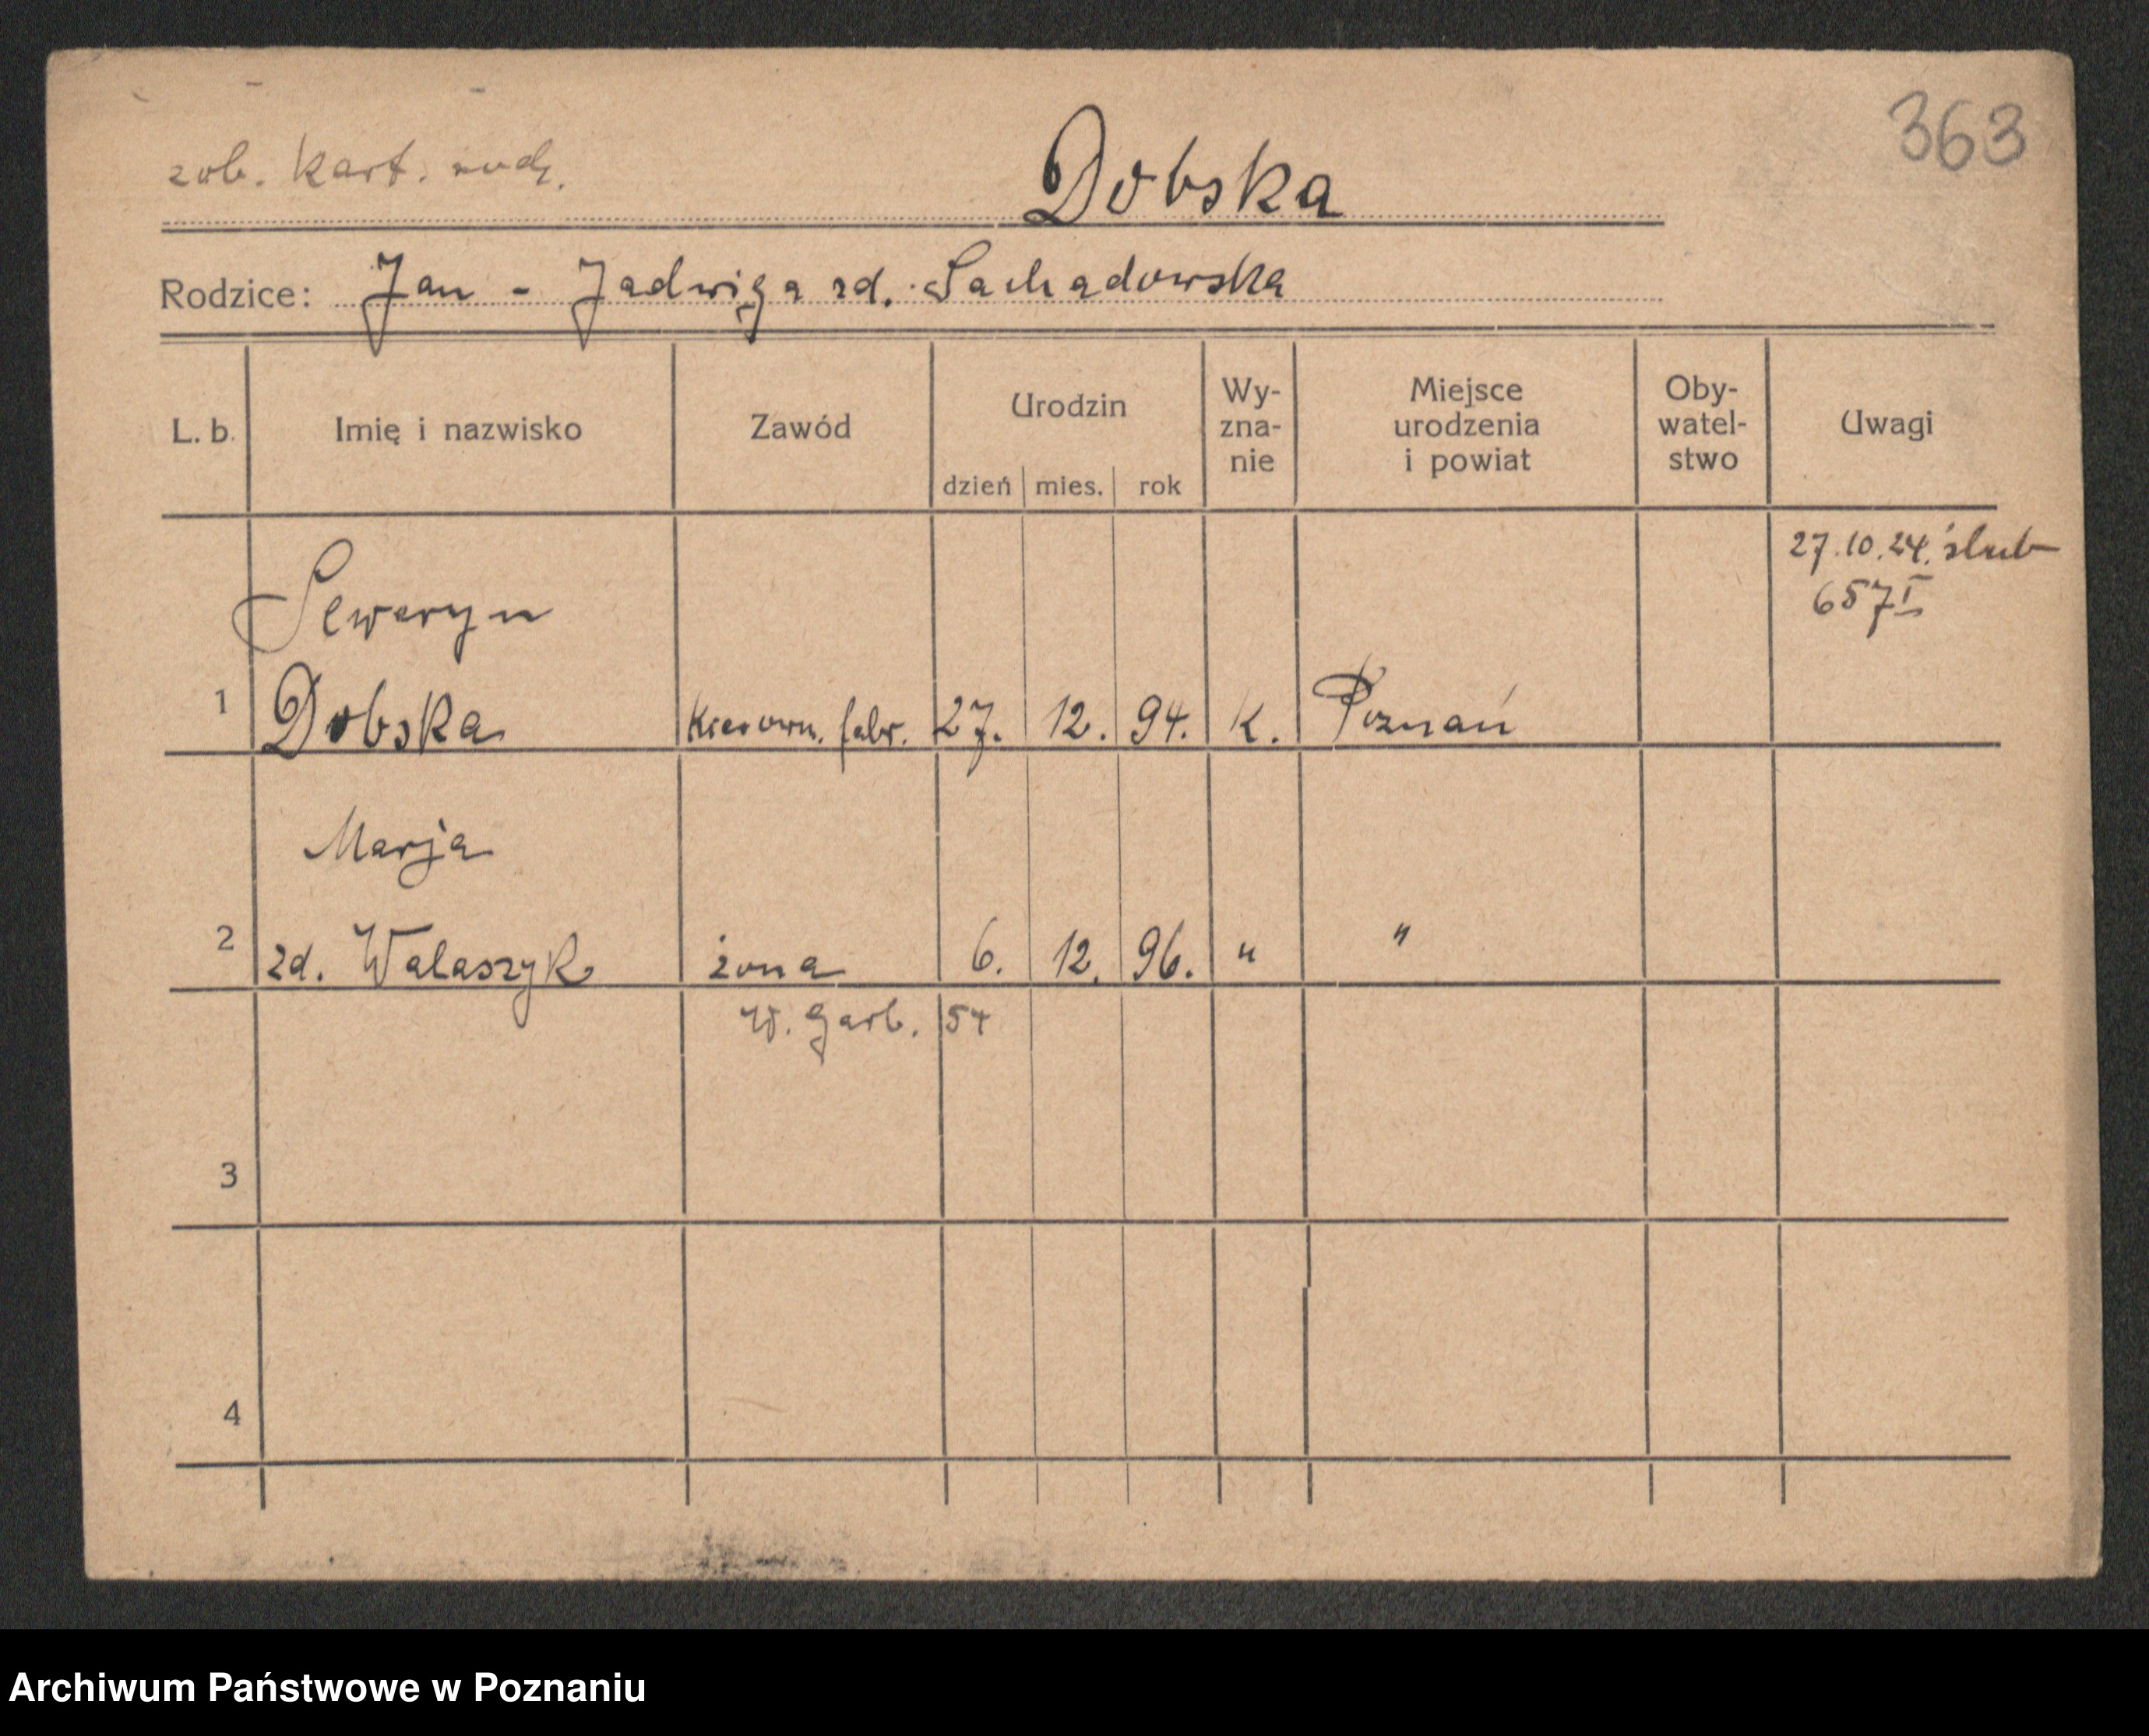 363
zob. kart. rodz.
Dobska
Rodzice: Jan - Jadwiga zd. Sachadowska
L. b. Imię i nazwisko Zawód Urodzin Wy- Miejsce Oby- Uwagi
zna- urodzenia watel-
nie i powiat stwo
dzień mies. rok
27.10.24. ślub
657 I
Seweryn
1 Dobska Kierown. fabr. 27. 12. 94. K. Poznań
Marja
2 zd. Walaszyk żona 6. 12. 96. " "
W. Garb. 54
3
4
Archiwum Państwowe w Poznaniu